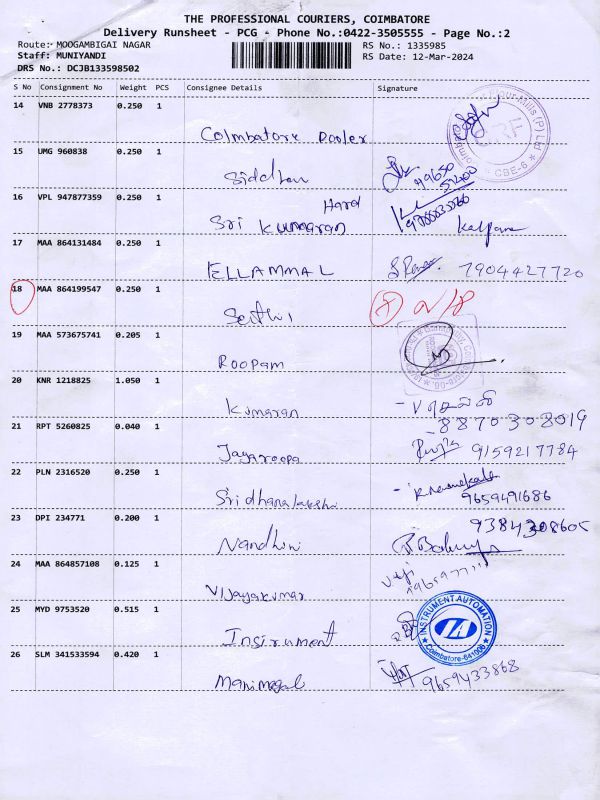 THE PROFESSIONAL COURIERS, COIMBATORE
Delivery Runsheet - PCG - Phone No.:0422-3505555 - Page No.:2
Route: MOOGAMBIGAI NAGAR RS No.: 1335985
Staff: MUNIYANDI RS Date: 12-Mar-2024
DRS No.: DCJB133598502
S No Consignment No Weight PCS Consignee Details Signature
14 VNB 2778373 0.250 1
Coimbatore
CBE-6
15 UMG 960838 0.250 1
Siddhan 99650
16 VPL 947877359 0.250 1
Hard
Sri Kumaran Kalpana
17 MAA 864131484 0.250 1
ELLAMMAL 7904427720
18 MAA 864199547 0.250 1
19 MAA 573675741 0.205 1
Roopam
20 KNR 1218825 1.050 1
Kumaran
8870308019
21 RPT 5260825 0.040 1
Jayaroopa 9159217784
22 PLN 2316520 0.250 1
9659491686
23 DPI 234771 0.200 1
9384308605
Nandhini
24 MAA 864857108 0.125 1
Vijayakumar
25 MYD 9753520 0.515 1
Insirument
INSTRUMENT AUTOMATION
IA
Coimbatore-641006
26 SLM 341533594 0.420 1
Manimegal 9659433868